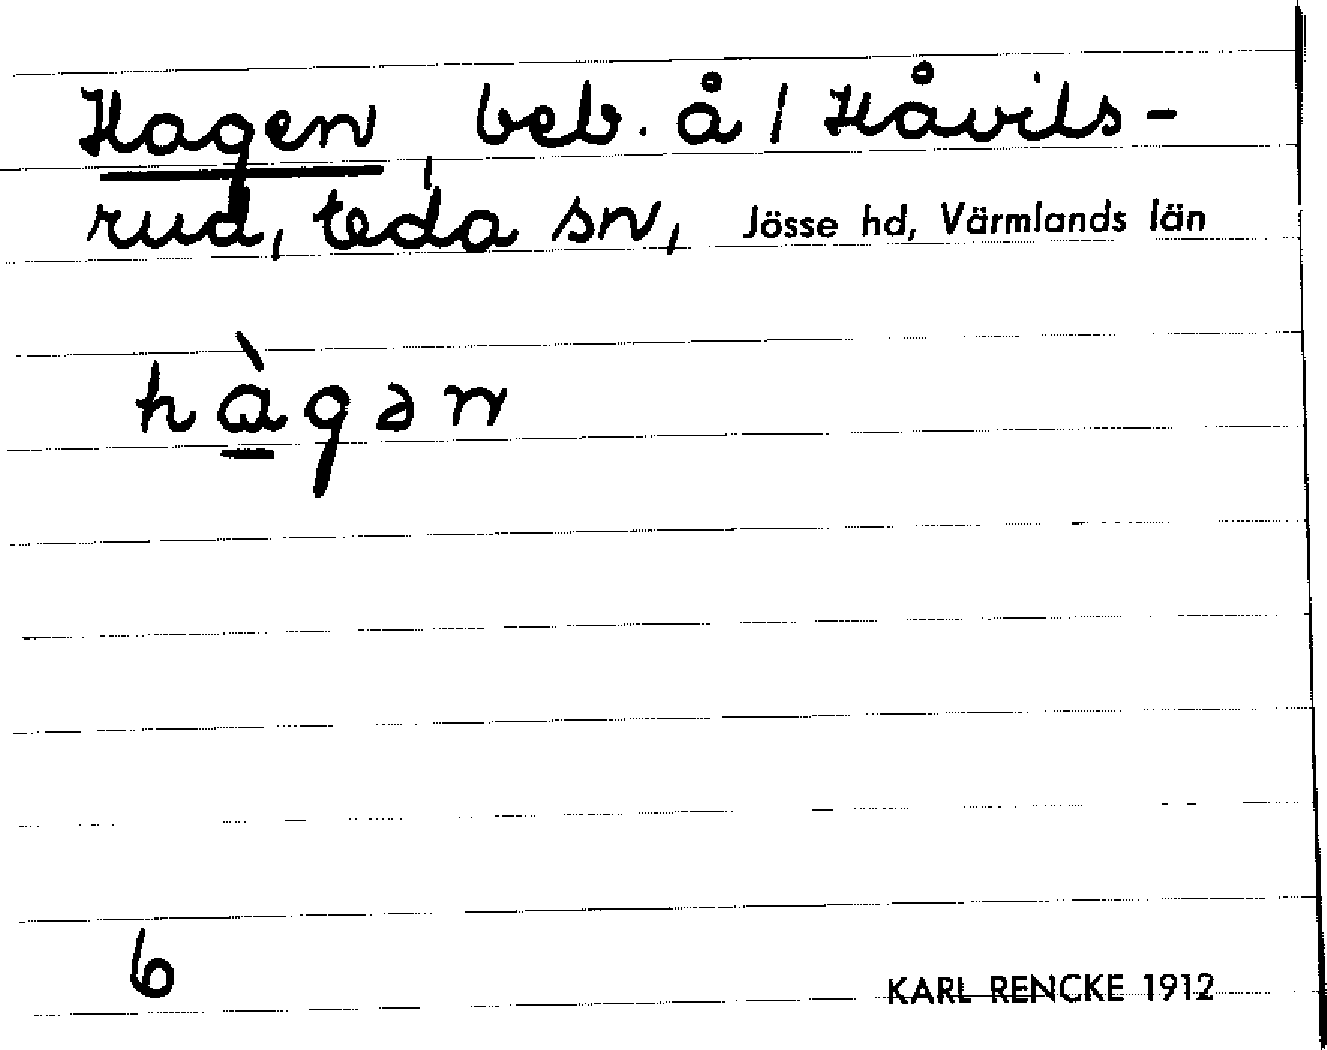 Hagen, beb. å 1 Håvils-
rud, Eda sn, Jösse hd, Värmlands län
hàgən
6
KARL RENCKE 1912